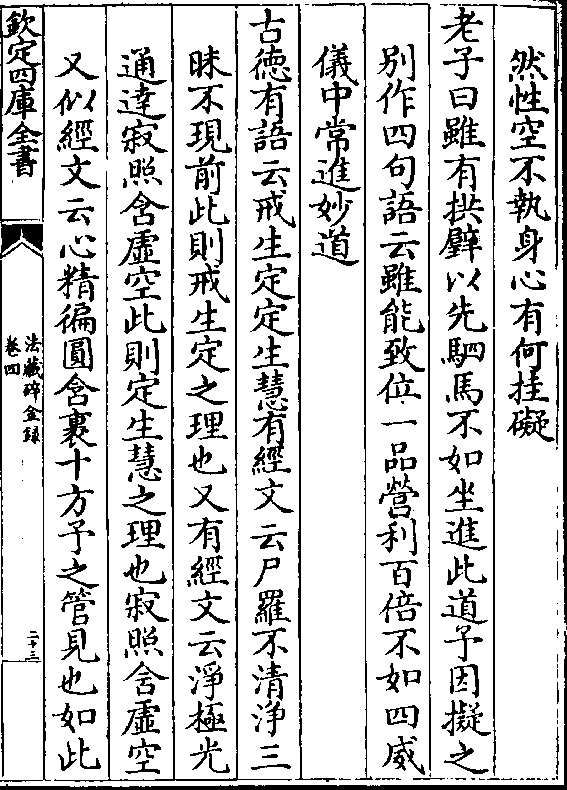 然性空不執身心有何挂礙
老子曰雖有拱璧以先駟馬不如坐進此道予因擬之
別作四句語云雖能致位一品營利百倍不如四威
儀中常進妙道
古德有語云戒生定定生慧有經文云尸羅不清淨三
昧不現前此則戒生定之理也又有經文云淨極光
通達寂照含虛空此則定生慧之理也寂照含虛空
又似經文云心精徧圓含裹十方予之管見也如此
欽定四庫全書
法藏碎金録
卷四
二十三